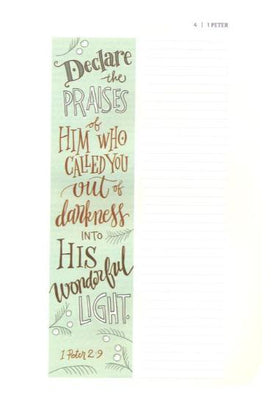 4 | 1 PETER
Declare
the
PRAISES
of
HIM WHO
CALLED YOU
out of
darkness
INTO
HIS
wonderful
LIGHT.
1 Peter 2:9